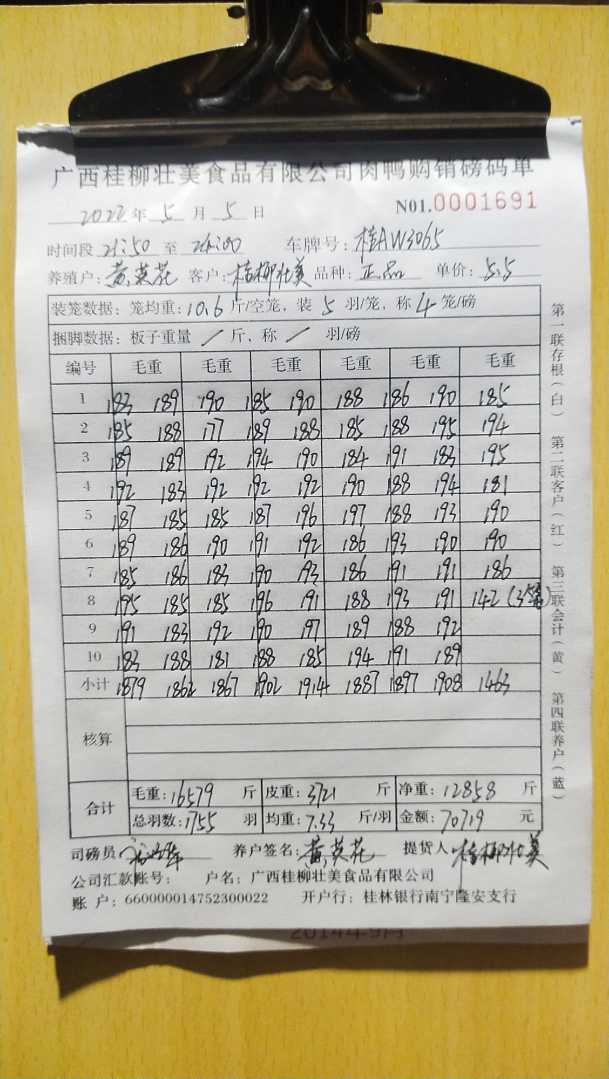 广西桂柳壮美食品有限公司肉鸭购销磅码单
2022年5月5日 N01.0001691
时间段21:50至24:00 车牌号:桂AW3065
养殖户:黄英花 客户:桂柳壮美 品种:正品 单价:5.5
装笼数据:笼均重:10.6斤/空笼,装5羽/笼,称4笼/磅
捆脚数据:板子重量/斤,称/羽/磅
编号 毛重 毛重 毛重 毛重 毛重 毛重
1 183 189 190 185 190 188 186 190 185
2 185 188 177 189 188 185 188 195 194
3 189 189 192 194 190 184 191 183 195
4 192 183 192 192 192 190 188 194 181
5 187 185 185 187 196 197 188 193 190
6 189 186 190 191 192 186 193 190 190
7 185 186 183 190 193 186 191 191 186
8 195 185 185 196 191 188 193 191 142(3笼)
9 191 183 192 190 197 189 188 192
10 183 188 181 188 185 194 191 189
小计 1879 1862 1867 1902 1914 1887 1897 1908 1463
核算
合计 毛重:16579斤 皮重:3721斤 净重:12858斤
总羽数:1755羽 均重:7.33斤/羽 金额:70719元
司磅员 养户签名:黄英花 提货人 桂柳壮美
公司汇款账号: 户名:广西桂柳壮美食品有限公司
账户:660000014752300022 开户行:桂林银行南宁隆安支行
第一联存根(白) 第二联客户(红) 第三联会计(黄) 第四联养户(蓝)
2014年9月